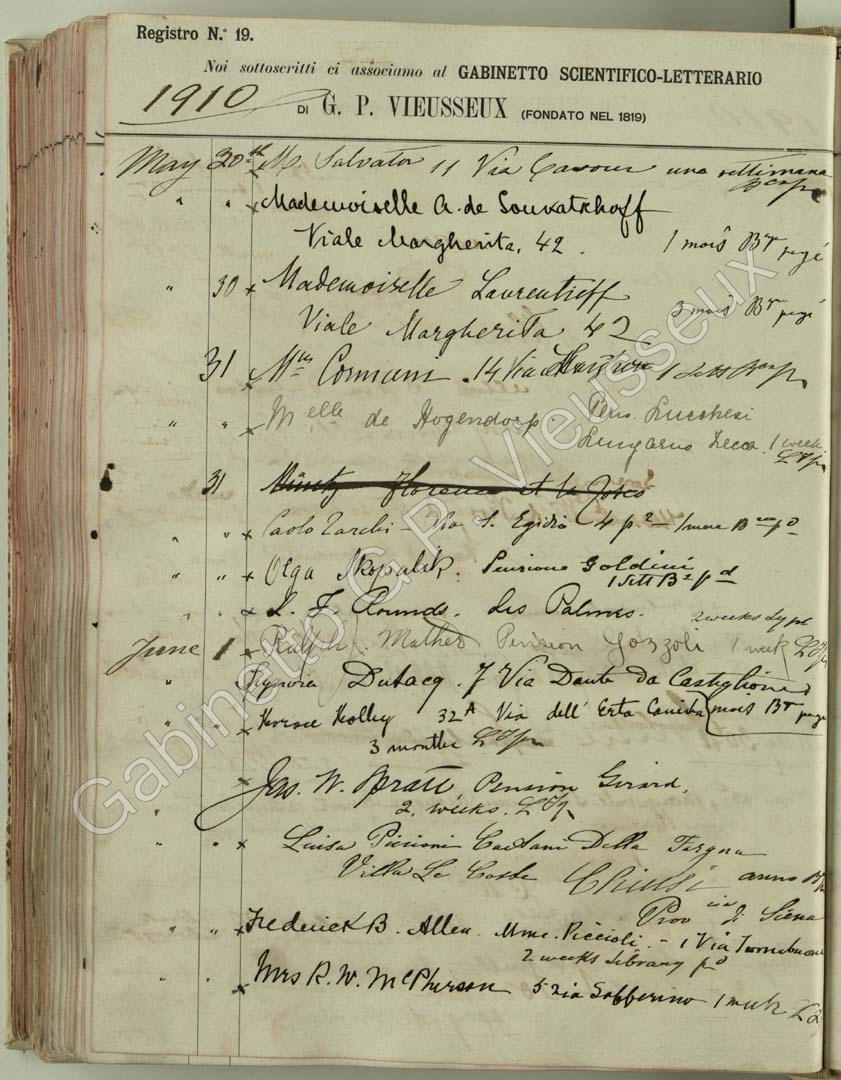 Registro N.° 19.
Noi sottoscritti ci associamo al GABINETTO SCIENTIFICO-LETTERARIO
1910
DI G. P. VIEUSSEUX (FONDATO NEL 1819)
May 30th M. Salvator 11 Via Cavour una settimana
" " x Mademoiselle A. de Souvatzhoff
Viale Margherita, 42. 1 mois Br payé
" 30 x Mademoiselle Laurentieff
Viale Margherita 42 3 mois Br payé
31 x 14 Via 1 Sett
" " x Melle de Hogendorp. Pens. Lucchesi
Lungarno Zecca. 1 week
31 Florence et la
" " x Paolo Zarchi - Via S. Egidio 4 p 2° 1 mese
" " x Olga Skopalik. Pensione Goldini
1 Sett
" " x L. F. Rounds. des Palmes. 2 weeks
June 1 x Ralph Mather, Pension 1 week
" Signora Dutacq. 7 Via Dante da Castiglione
" " x Horace Holley 32A Via dell' Erta Canina mois Br payé
3 months
x Jas. W. Pratt, Pension Girard,
" 2. weeks.
" " x Luisa Caetani Della Fargna
Villa Le Coste Chiusi anno
Prov di Siena
" " x Frederick B. Allen. Mme. Piccioli. - 1 Via Tornabuoni
2 weeks Library
" " x Mrs R. W. McPherson 5 via Solferino
Gabinetto G. P. Vieusseux